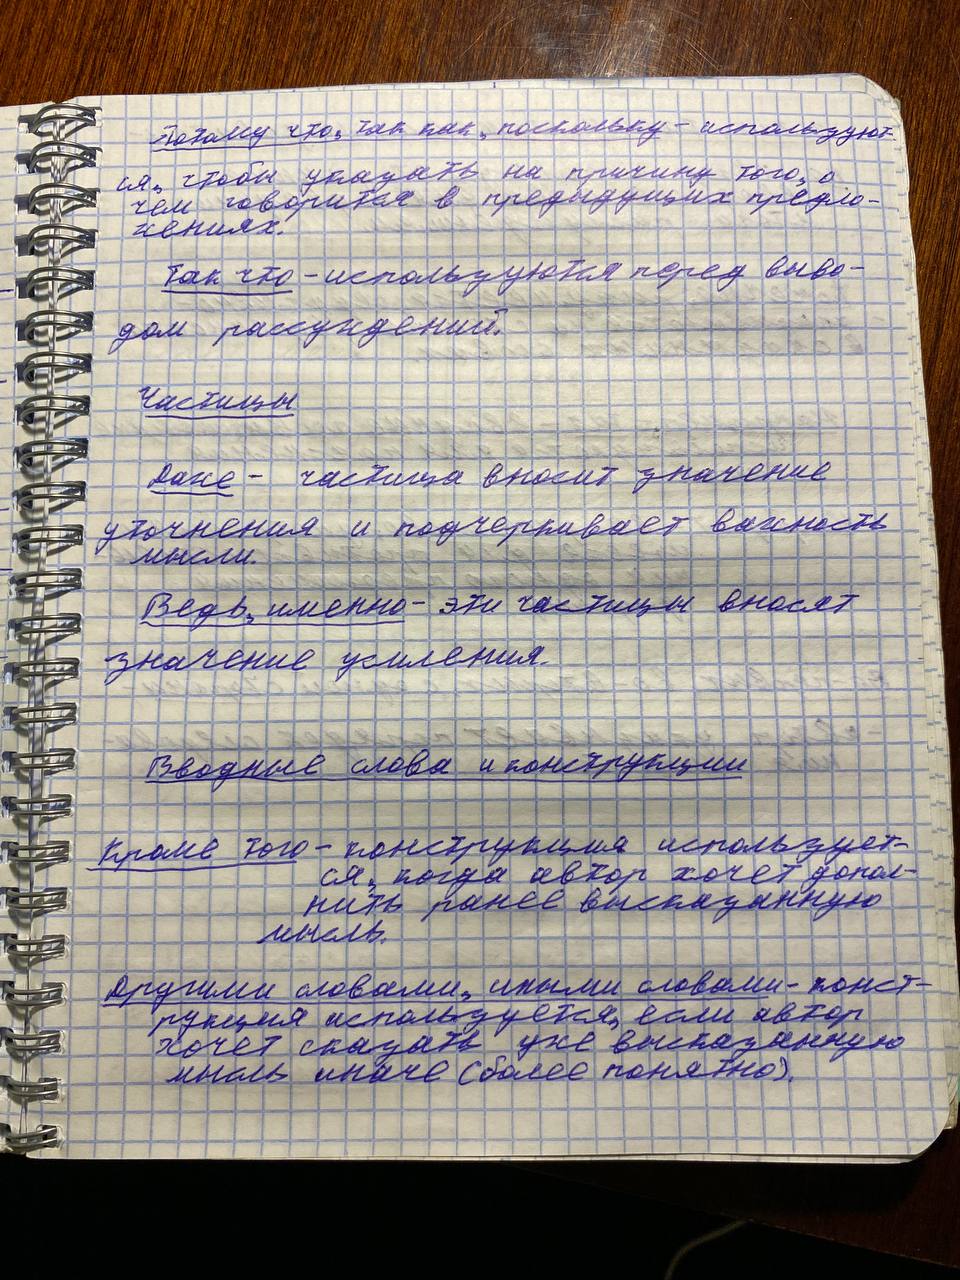 Потому что, так как, поскольку - используют-
ся, чтобы указать на причину того, о
чем говорится в предыдущих предло-
жениях.
Так что - используются перед выво-
дом рассуждений.
Частицы
Даже - частица вносит значение
уточнения и подчеркивает важность
мысли.
Ведь, именно - эти частицы вносят
значение усиления.
Вводные слова и конструкции
Кроме того - конструкция использует-
ся, когда автор хочет допол-
нить ранее высказанную
мысль.
Другими словами, иными словами - конст-
рукция используется, если автор
хочет сказать уже высказанную
мысль иначе (более понятно).